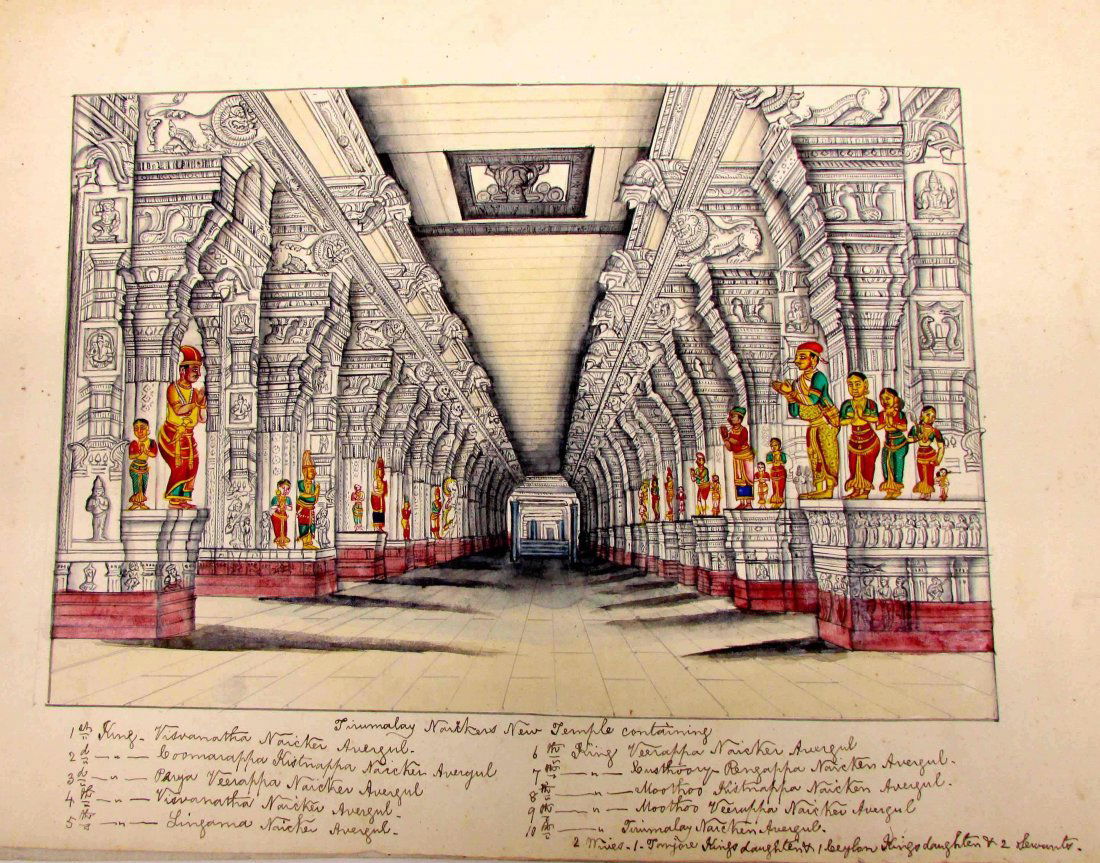 Tirumalay Naickers New Temple containing
1st King - Visvanatha Naicker Avergul -
2d — " — Coomarappa Kistnappa Naicker Avergul
3d — " — Perya Veerappa Naicker Avergul
4th — " — Visvanatha Naicker Avergul -
5th — " — Lingama Naicker Avergul -
6th King Veerappa Naicker Avergul
7th — " — Custhoory Rengappa Naicker Avergul -
8th — " — Moothoo Kistnappa Naicker Avergul.
9th — " — Moothoo Veerappa Naicker Avergul
10th — " Tirumalay Naicker Avergul -
2 Wives - 1 - Tanjore Kings daughter & 1 Ceylon Kings daughter & 2 Servants -